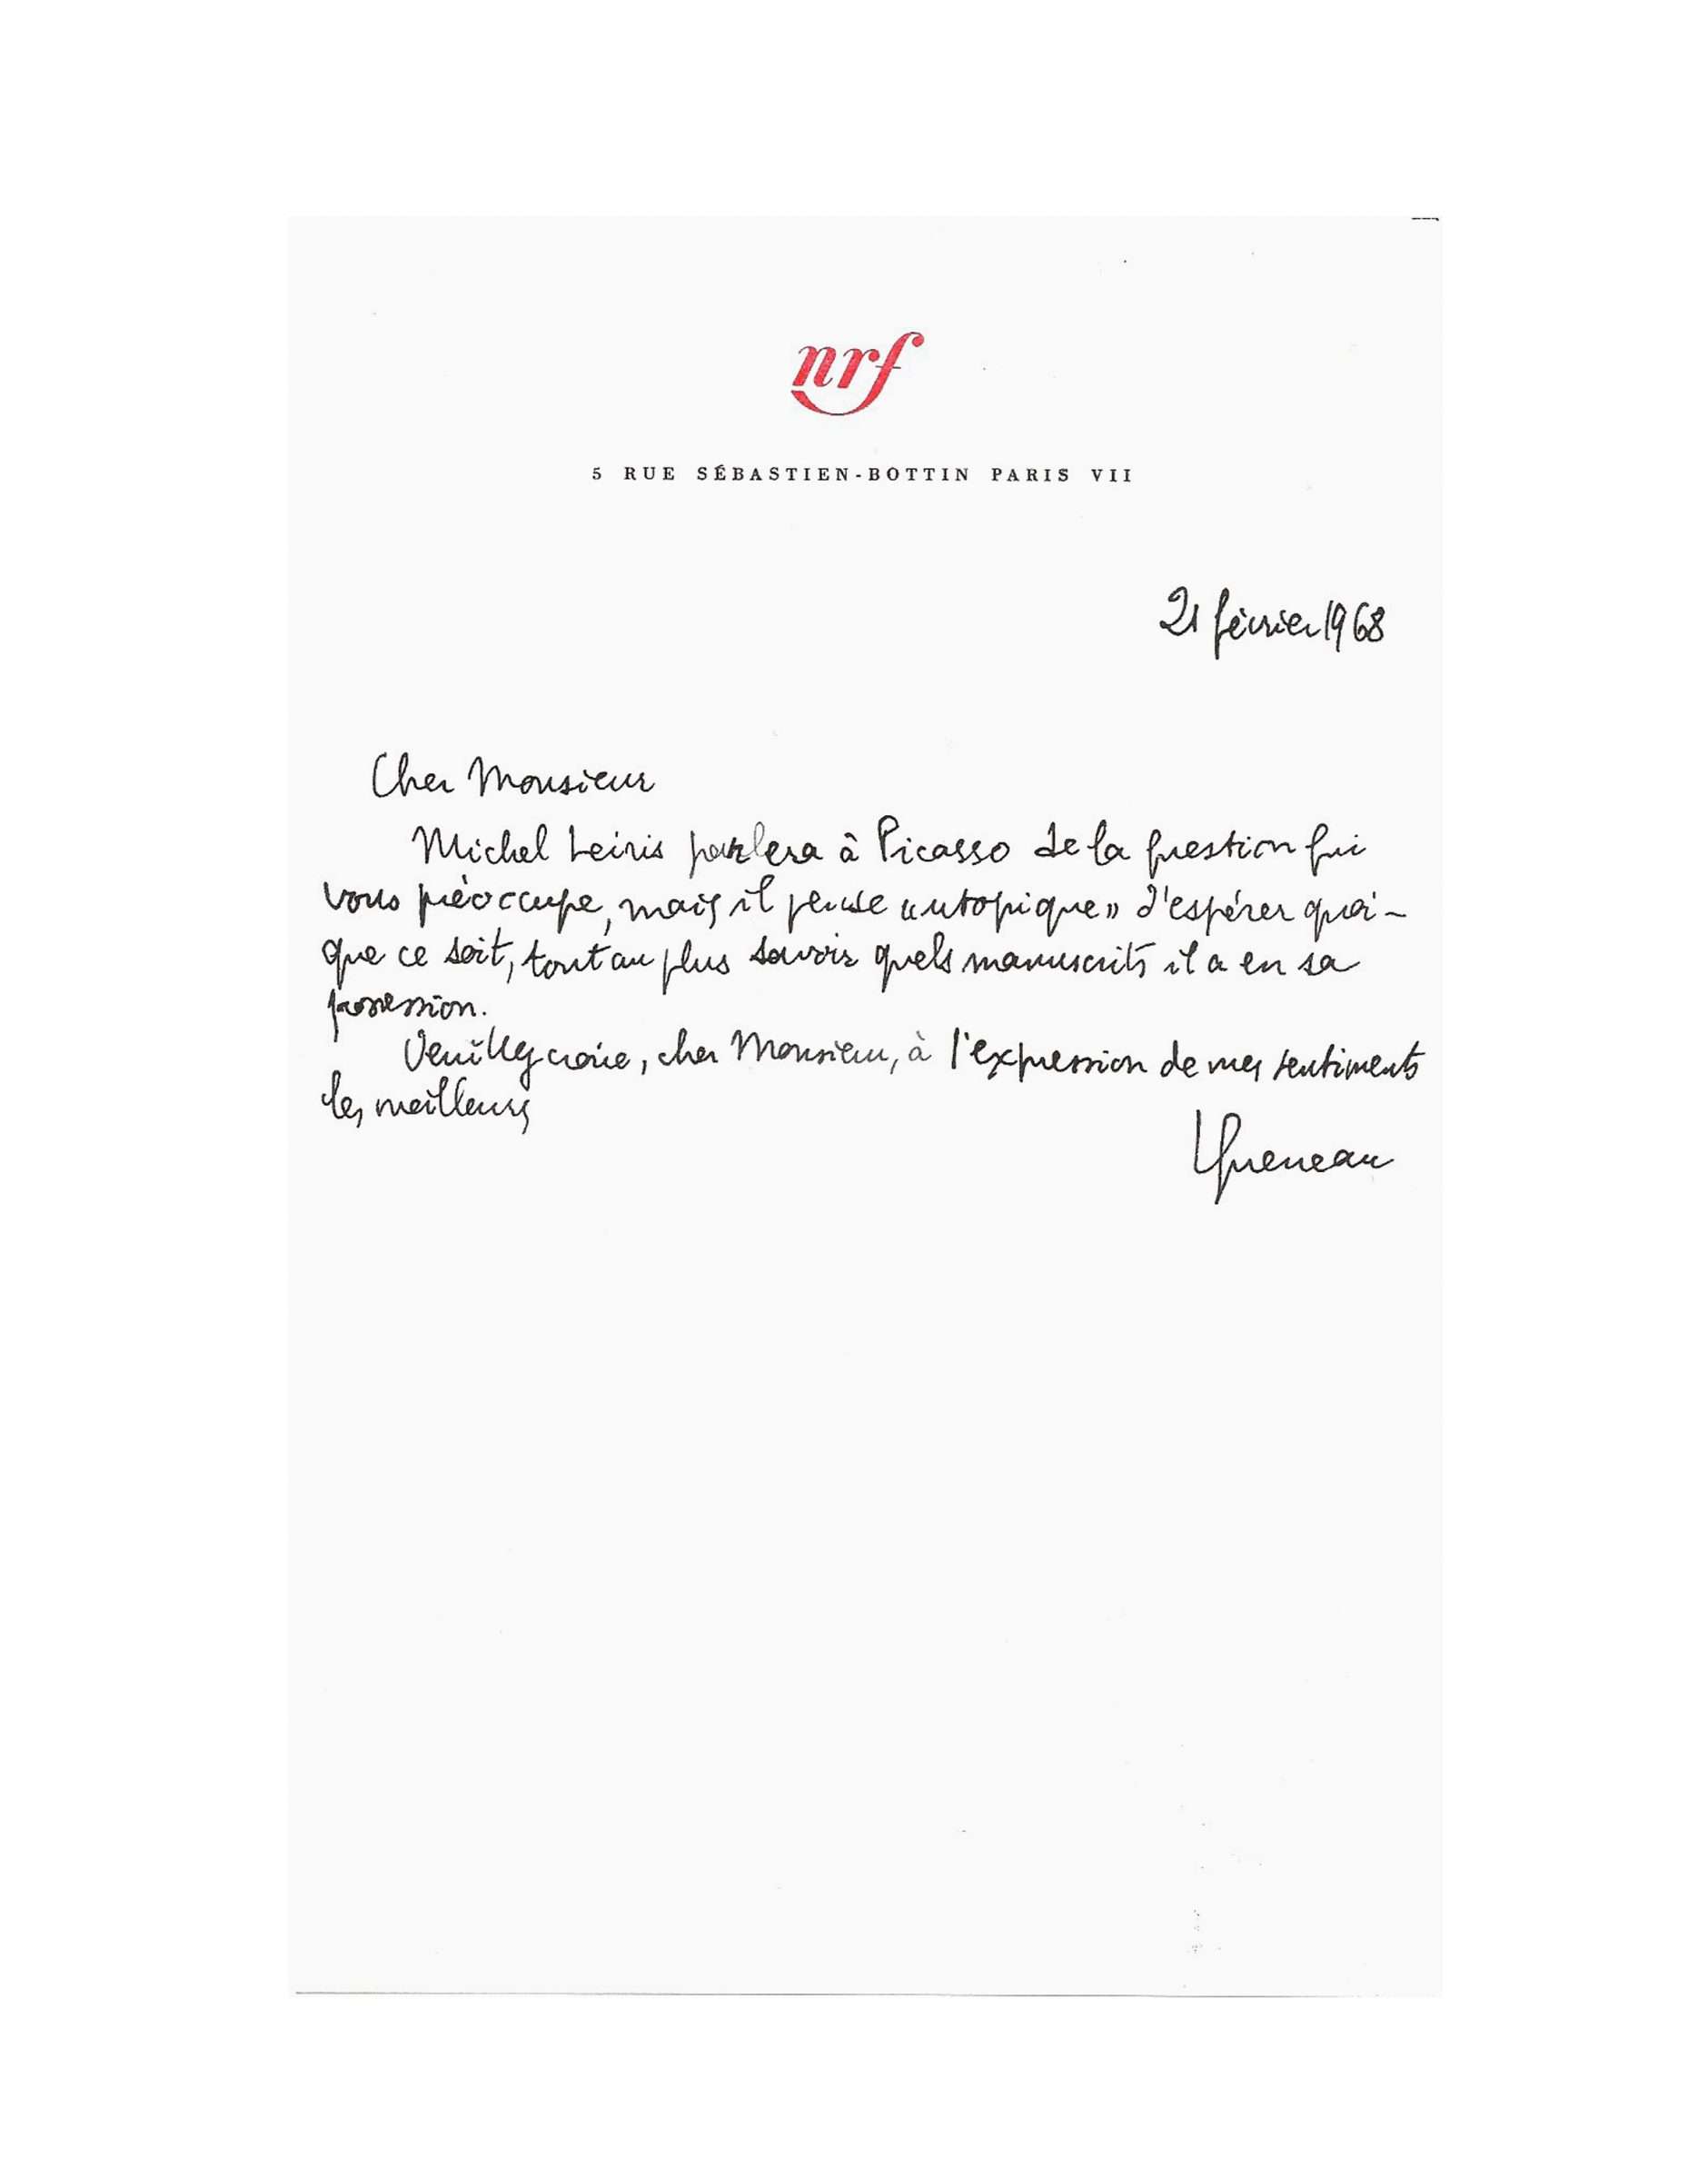 nrf
5 RUE SÉBASTIEN-BOTTIN PARIS VII
21 février 1968
Cher Monsieur
Michel Leiris parlera à Picasso de la question qui
vous préoccupe, mais il pense « utopique » d'espérer quoi-
que ce soit, tout au plus savoir quels manuscrits il a en sa
possession.
Veuillez croire, cher Monsieur, à l'expression de mes sentiments
les meilleurs
Queneau